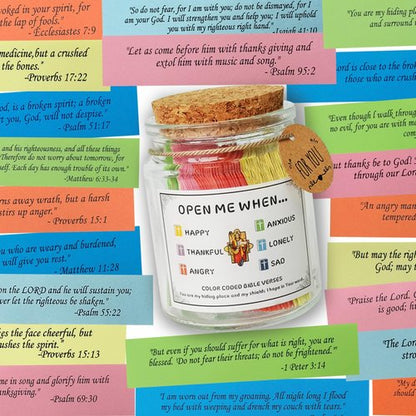 voked in your spirit, for
the lap of fools."
- Ecclesiastes 7:9
"So do not fear, for I am with you; do not be dismayed, for I
am your God. I will strengthen you and help you; I will uphold
you with my righteous right hand."
-Isaiah 41:10
"You are my hiding
and surround
medicine,but a crushed
the bones."
-Proverbs 17:22
"Let us come before him with thanks giving and
extol him with music and song."
- Psalm 95:2
Lord is close to the
those who are crus
God, is a broken spirit; a broken
you, God, will not despise.
-Psalm 51:17
Even though I walk throug
no evil, for you are with
com
and his righteousness, and all these things
Therefore do not worry about tomorrow, for
self. Each day has enough trouble of its own."
-Matthew 6:33-34
but thanks be to God!
through our Lor
rns away wrath, but a harsh
stirs up anger."
- Proverbs 15:1
An angry man
tempered
you who are weary and burdened,
will give you rest."
- Matthew 11:28
"But may the righ
God; may
on the LORD and he will sustain you;
ever let the righteous be shaken."
-Psalm 55:22
"Praise the Lord.
is good; hi
kes the face cheerful, but
ushes the spirit."
-Proverbs 15:13
"But even if you should suffer for what is right, you are
blessed. 'Do not fear their threats; do not be frightened.'"
-1 Peter 3:14
The L
stro
me in song and glorify him with
nksgiving."
-Psalm 69:30
"I am worn out from my groaning. All night long I flood
my bed with weeping and drench my couch with tears."
"My
should
FOR YOU!
OPEN ME WHEN...
HAPPY
THANKFUL
ANGRY
ANXIOUS
LONELY
SAD
COLOR CODED BIBLE VERSES
You are my hiding place and my shield; I hope in Your word.